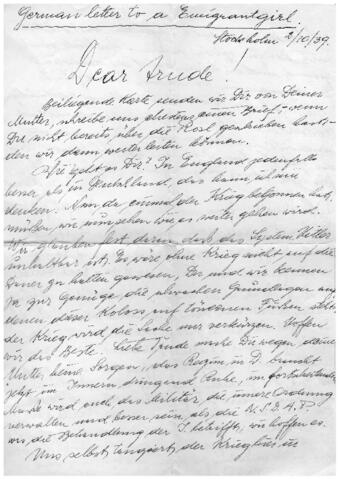 German letter to a Emigrantgirl.
Stockholm 2/10/39.
Dear Trude!
Beiliegende Karte senden wir Dir von Deiner
Mutter, schreibe uns ehestens einen Brief, wenn
Du nicht bereits über die Rosl geschrieben hast,
den wir dann weiterleiten können.
Wie geht es Dir? In England jedenfalls
besser, als in Deutschland, das kann ich mir
denken! Nun da einmal der Krieg begonnen hat,
müssen wir nun sehen wie es weiter gehen wird.
Wir glauben fest daran, daß das System Hitler
unhaltbar ist. Es wäre ohne Krieg nicht auf die
Dauer zu halten gewesen, Du und wir kennen
ja zur Genüge, die schwachen Grundlagen auf
denen dieser Koloss auf tönernen Füßen steht
der Krieg wird die Sache nur verkürzen. Hoffen
wir das Beste. Liebe Trude mache Dir wegen deine
Mutter keine Sorgen, das Regim in D. braucht
jetzt im Innern dringend Ruhe, im
wird auch das Militär die innere Ordnung
verwalten und besser sein, als die N.S.D.A.P.
was die Behandlung der J. betrifft, wir hoffen es.
Uns selbst tangiert der Krieg hier in